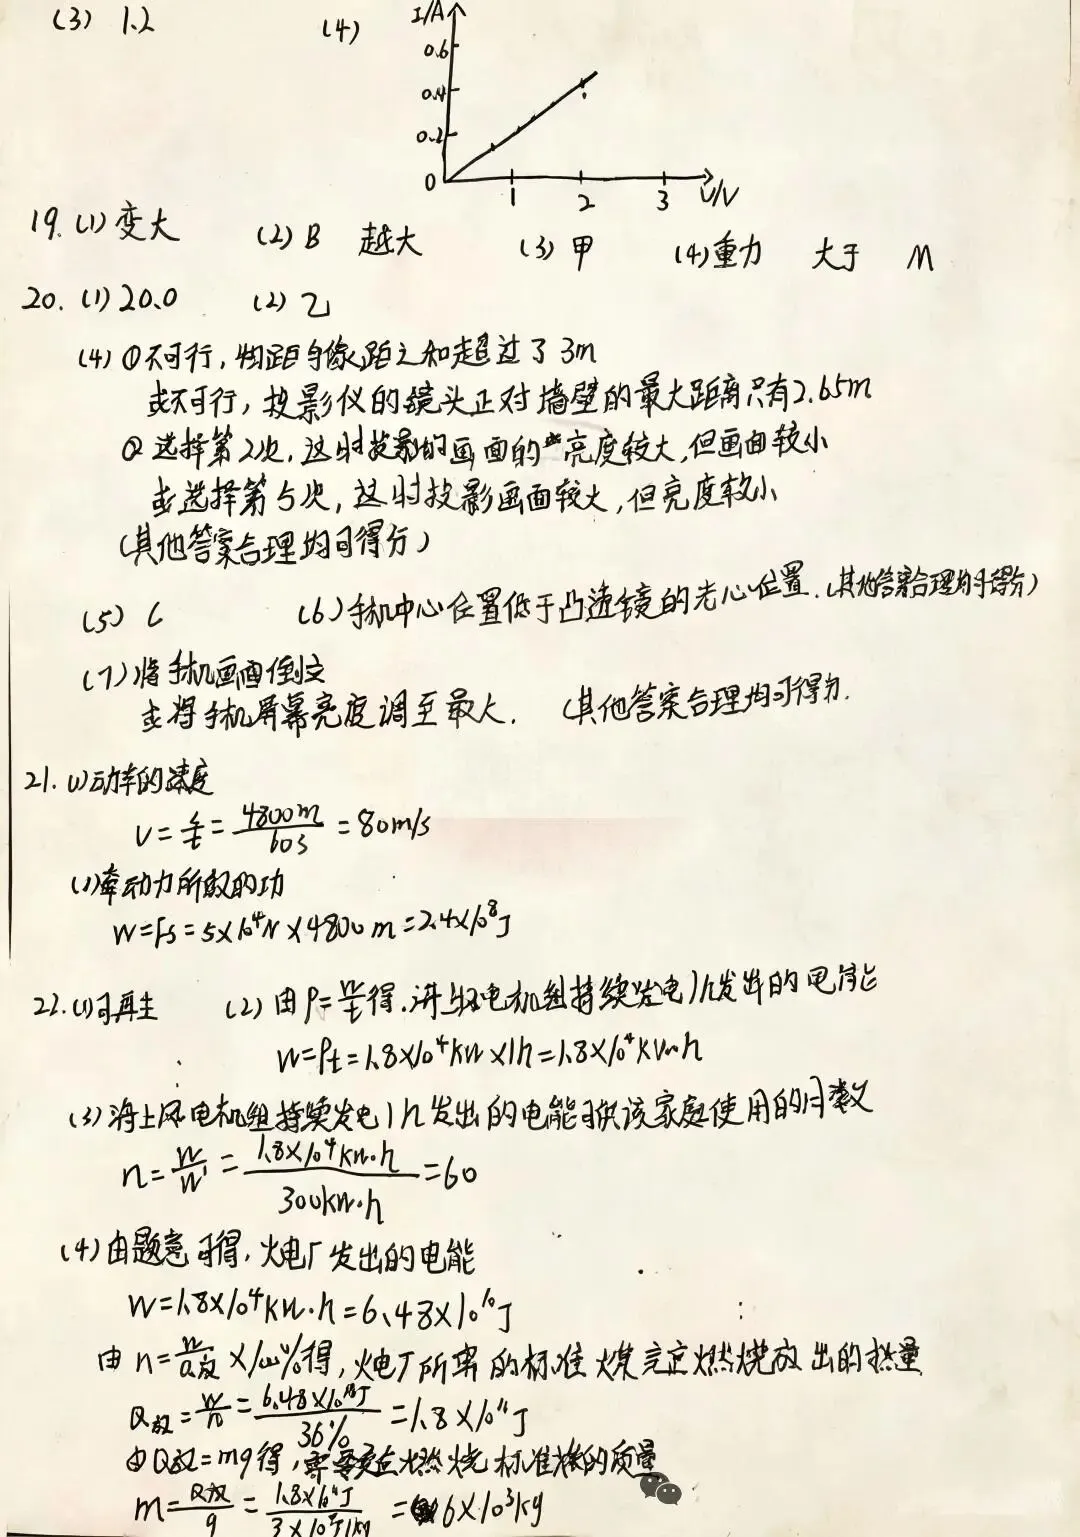 (3) 1.2 (4)
I/A
0.6
0.4
0.2
0 1 2 3 U/V
19. (1) 变大 (2) B 越大 (3) 甲 (4) 重力 大于 M
20. (1) 20.0 (2) 乙
(4) ①不可行，物距与像距之和超过了3m
或不可行，投影仪的镜头正对墙壁的最大距离只有2.65m
② 选择第2次，这时投影的画面的亮度较大，但画面较小
或选择第5次，这时投影画面较大，但亮度较小
(其他答案合理均可得分)
(5) C (6) 手机中心位置低于凸透镜的光心位置.(其他答案合理均可得分)
(7) 将手机画面倒立
或将手机屏幕亮度调至最大. (其他答案合理均可得分.
21. (1) 动车的速度
V=s/t=4800m/60s=80m/s
(2) 牵动力所做的功
W=Fs=5×10⁴N×4800m=2.4×10⁸J
22. (1) 可再生 (2) 由P=W/t得.海上风电机组持续发电1h发出的电能
W=Pt=1.8×10⁴kW×1h=1.8×10⁴kW·h
(3) 海上风电机组持续发电1h发出的电能可供该家庭使用的月数
n=W/W'=1.8×10⁴kW·h/300kW·h=60
(4) 由题意可得，火电厂发出的电能
W=1.8×10⁴kW·h=6.48×10¹⁰J
由η=W/Q放×100%得，火电厂所需的标准煤完全燃烧放出的热量
Q放=W/η=6.48×10¹⁰J/36%=1.8×10¹¹J
由Q放=mq得，需要完全燃烧标准煤的质量
m=Q放/q=1.8×10¹¹J/3×10⁷J/kg=6×10³kg